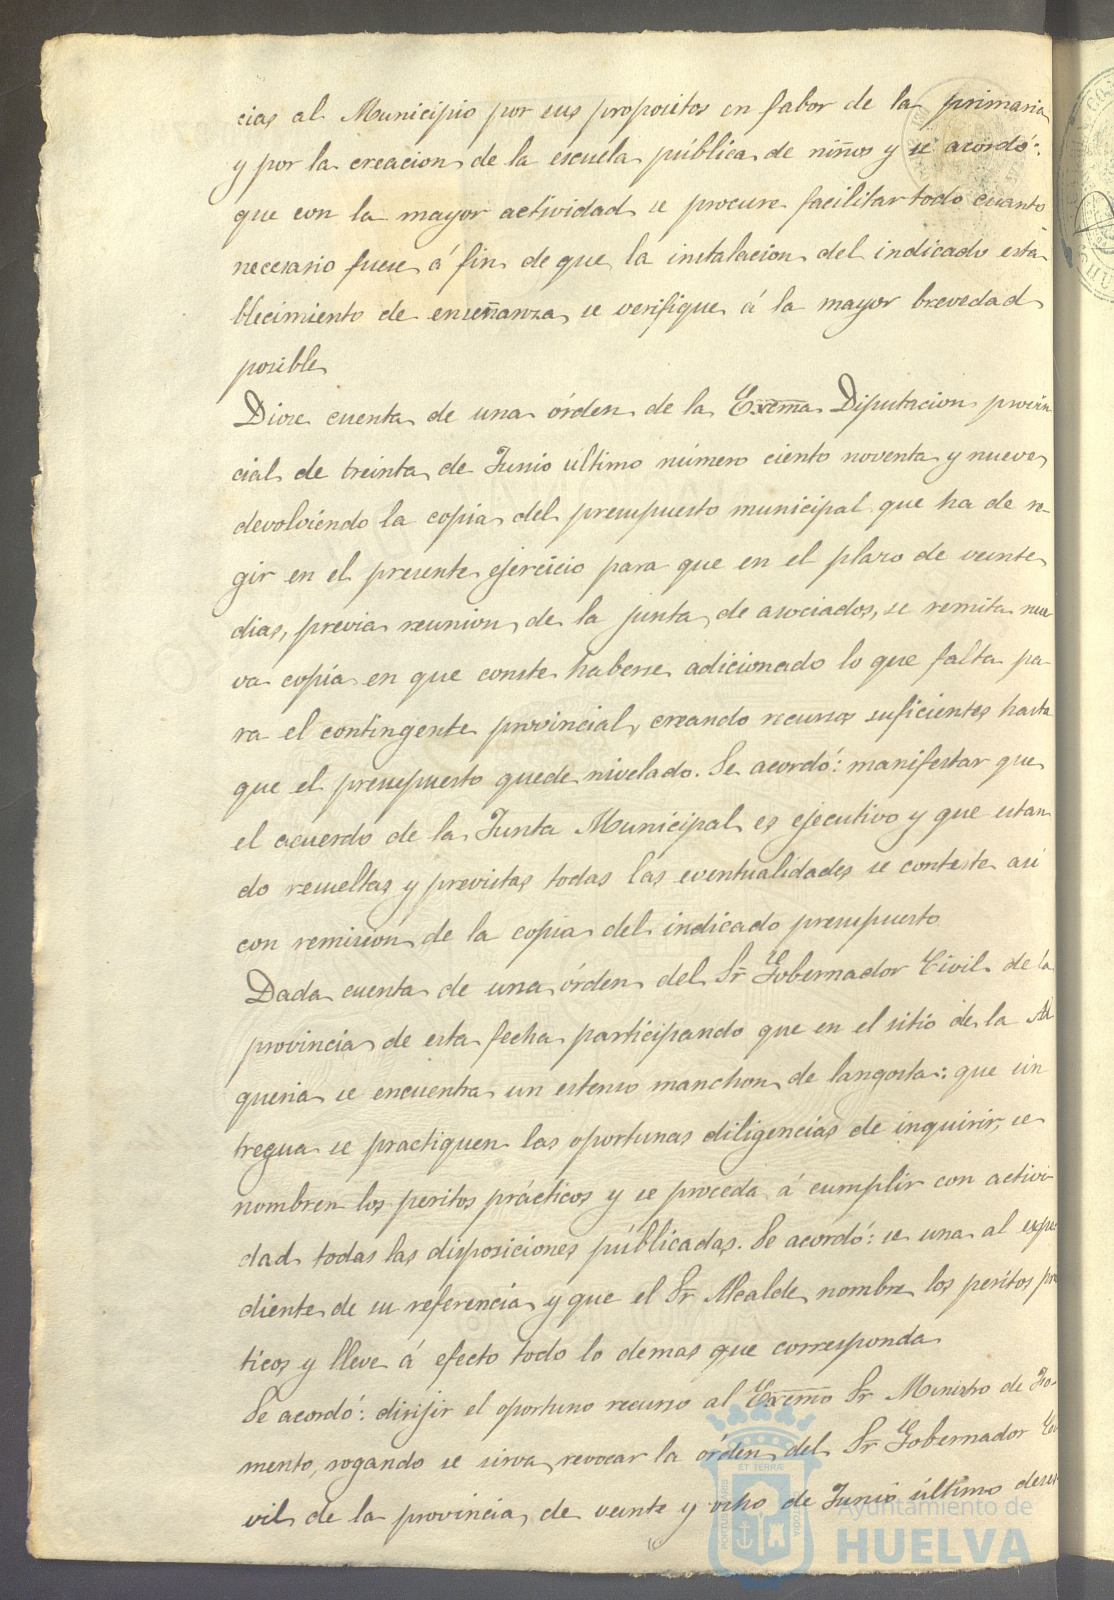 cias al Municipio por sus propositos en fabor de la primaria
y por la creacion de la escuela pública de niños y se acordó:
que con la mayor actividad se procure facilitar todo cuanto
necesario fuese á fin de que la instalacion del indicado esta
blecimiento de enseñanza se verifique á la mayor brevedad
posible
Diose cuenta de una órden de la Excma Diputacion provin
cial de treinta de Junio último número ciento noventa y nueve
devolviendo la copia del presupuesto municipal que ha de re-
gir en el presente ejercicio para que en el plazo de veinte
dias, previa reunion de la junta de asociados, se remita nue
va copia en que conste haberse adicionado lo que falta pa-
ra el contingente provincial, creando recursos suficientes hasta
que el presupuesto quede nivelado. Se acordó: manifestar que
el acuerdo de la Junta Municipal es ejecutivo y que estan
do resueltas y previstas todas las eventualidades se conteste asi
con remision de la copia del indicado presupuesto
Dada cuenta de una órden del Sr Gobernador Civil de la
provincia de esta fecha participando que en el sitio de la Al
queria se encuentra un estenso manchon de langosta: que sin
tregua se practiquen las oportunas diligencias de inquirir, se
nombren los peritos prácticos y se proceda á cumplir con activi
dad todas las disposiciones públicadas. Se acordó: se una al espe
diente de su referencia y que el Sr Alcalde nombre los peritos prac
ticos y lleve á efecto todo lo demas que corresponda
Se acordó: dirijir el oportuno recurso al Excmo Sr Ministro de Fo-
mento, rogando se sirva revocar la órden del Sr Gobernador Ci
vil de la provincia de veinte y ocho de Junio último deses
ET TERRÆ
PORTUS MARIS
CUSTODIA
Ayuntamiento de
HUELVA